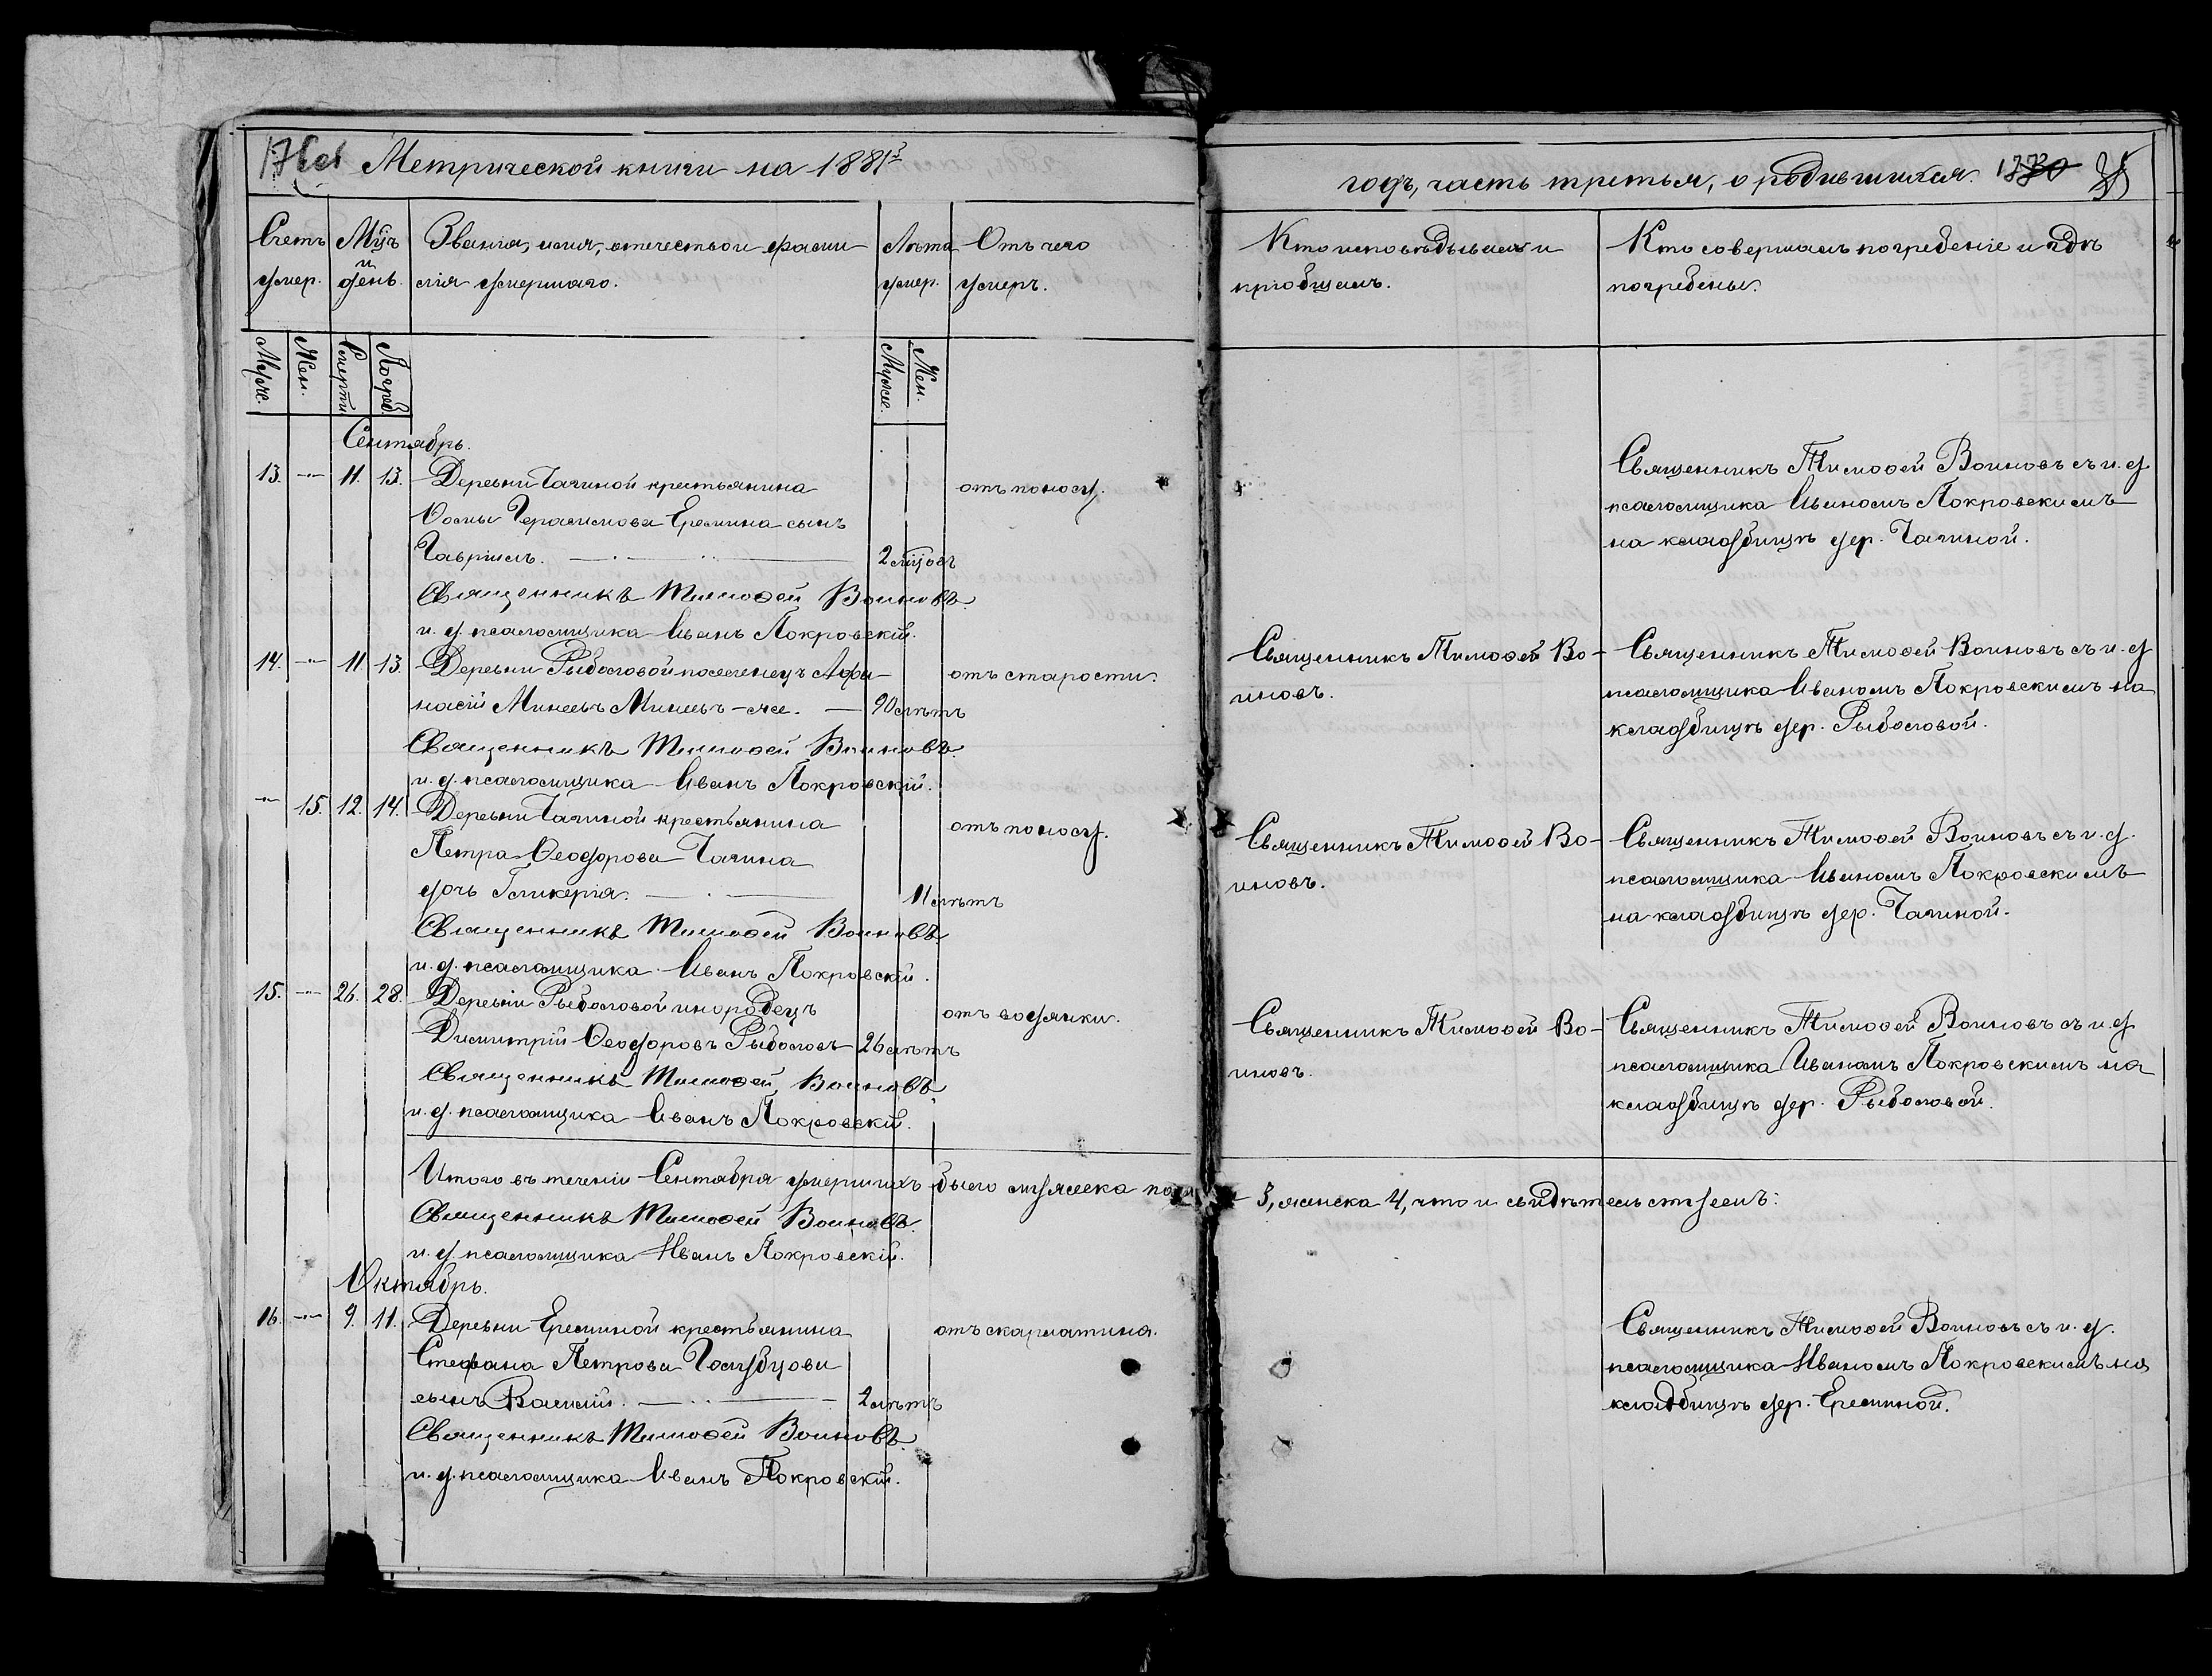 Метрической книги на 1881й
годъ, часть третья, о родившихся.
Счетъ умер.
Мцъ и день.
Званія, имя, отечество и фами-
лія умершаго.
Лѣта умер.
Отъ чего
умеръ.
Кто исповѣдывалъ и
пріобщалъ.
Кто совершалъ погребеніе и гдѣ
погребены.
Муже.
Жен.
Смерти
Погреб.
Муже.
Жен.
Сентябрь.
13. -"- 11. 13. Деревни Чагиной крестьянина отъ поносу.
Ѳомы Герасимова Еремина сынъ
Гавріилъ. 2 мцовъ
Священникъ Тимоѳей Воиновъ.
и. д. псаломщика Иванъ Покровскій.
Священникъ Тимоѳей Воиновъ съ и. д
псаломщика Иваномъ Покровскимъ
на кладбищѣ дер. Чагиной.
14. -"- 11. 13. Деревни Рыболовой поселенецъ Афа- отъ старости.
насій Минеевъ Минеевъ-же. 90 лѣтъ
Священникъ Тимоѳей Воиновъ.
и. д. псаломщика Иванъ Покровскій.
Священникъ Тимоѳей Во-
иновъ.
Священникъ Тимоѳей Воиновъ съ и. д
псаломщика Иваномъ Покровскимъ на
кладбищѣ дер. Рыболовой.
-"- 15. 12. 14. Деревни Чагиной крестьянина отъ поносу.
Петра Ѳеодорова Чагина
дочь Гликерія. 11 лѣтъ
Священникъ Тимоѳей Воиновъ
и. д. псаломщика Иванъ Покровскій.
Священникъ Тимоѳей Во-
иновъ.
Священникъ Тимоѳей Воиновъ съ и. д.
псаломщика Иваномъ Покровскимъ
на кладбищѣ дер. Чагиной.
15. -"- 26. 28. Деревни Рыболовой инородецъ отъ водянки.
Димитрій Ѳеодоровъ Рыболовъ 26 лѣтъ
Священникъ Тимоѳей Воиновъ.
и. д. псаломщика Иванъ Покровскій.
Священникъ Тимоѳей Во-
иновъ.
Священникъ Тимоѳей Воиновъ съ и. д
псаломщика Иваномъ Покровскимъ на
кладбищѣ дер. Рыболовой.
Итого въ теченіи Сентября умершихъ было мужеска пола 3, женска 4, что и свидѣтельствуемъ:
Священникъ Тимоѳей Воиновъ.
и. д. псаломщика Иванъ Покровскій.
Октябрь.
16. -"- 9. 11. Деревни Ереминой крестьянина отъ скарлатина.
Стефана Петрова Голубцова
сынъ Василій. 2 лѣтъ
Священникъ Тимоѳей Воиновъ.
и. д. псаломщика Иванъ Покровскій.
Священникъ Тимоѳей Воиновъ съ и. д.
псаломщика Иваномъ Покровскимъ на
кладбищѣ дер. Ереминой.